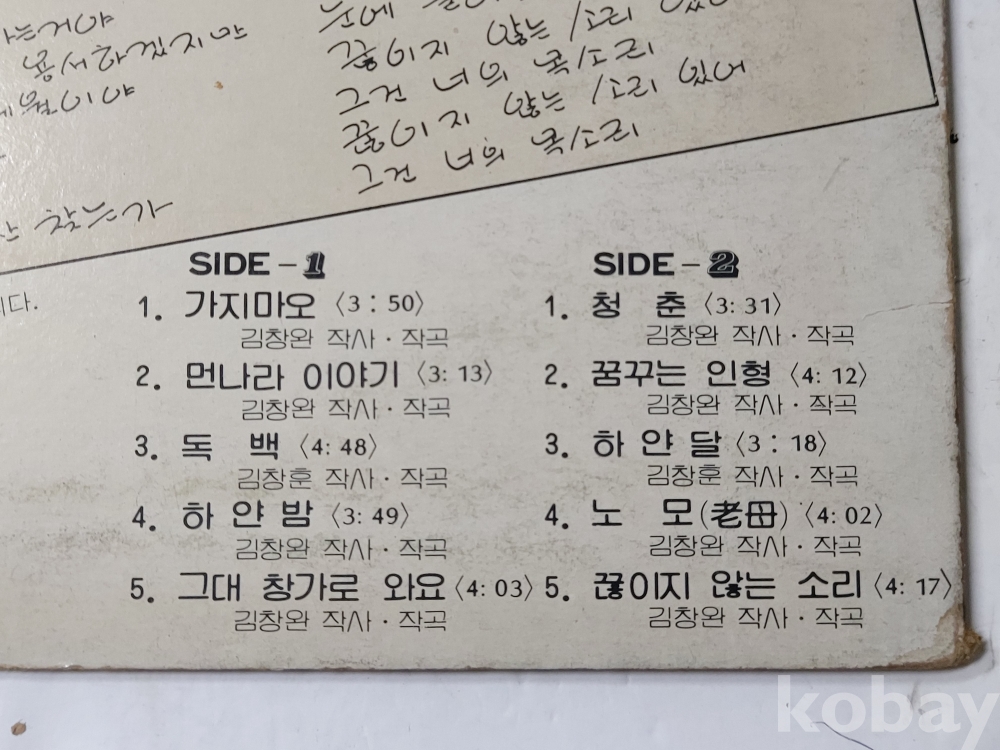 는거야
용서하겠지만
세월이야
찾는가
눈에
끊이지 않는 소리 있어
그건 너의 목소리
끊이지 않는 소리 있어
그건 너의 목소리
니다.
SIDE-1
1. 가지마오 〈3:50〉
김창완 작사·작곡
2. 먼나라 이야기 〈3:13〉
김창완 작사·작곡
3. 독 백 〈4:48〉
김창훈 작사·작곡
4. 하얀밤 〈3:49〉
김창완 작사·작곡
5. 그대 창가로 와요 〈4:03〉
김창완 작사·작곡
SIDE-2
1. 청 춘 〈3:31〉
김창완 작사·작곡
2. 꿈꾸는 인형 〈4:12〉
김창완 작사·작곡
3. 하얀달 〈3:18〉
김창훈 작사·작곡
4. 노 모(老母) 〈4:02〉
김창완 작사·작곡
5. 끊이지 않는 소리 〈4:17〉
김창완 작사·작곡
kobay